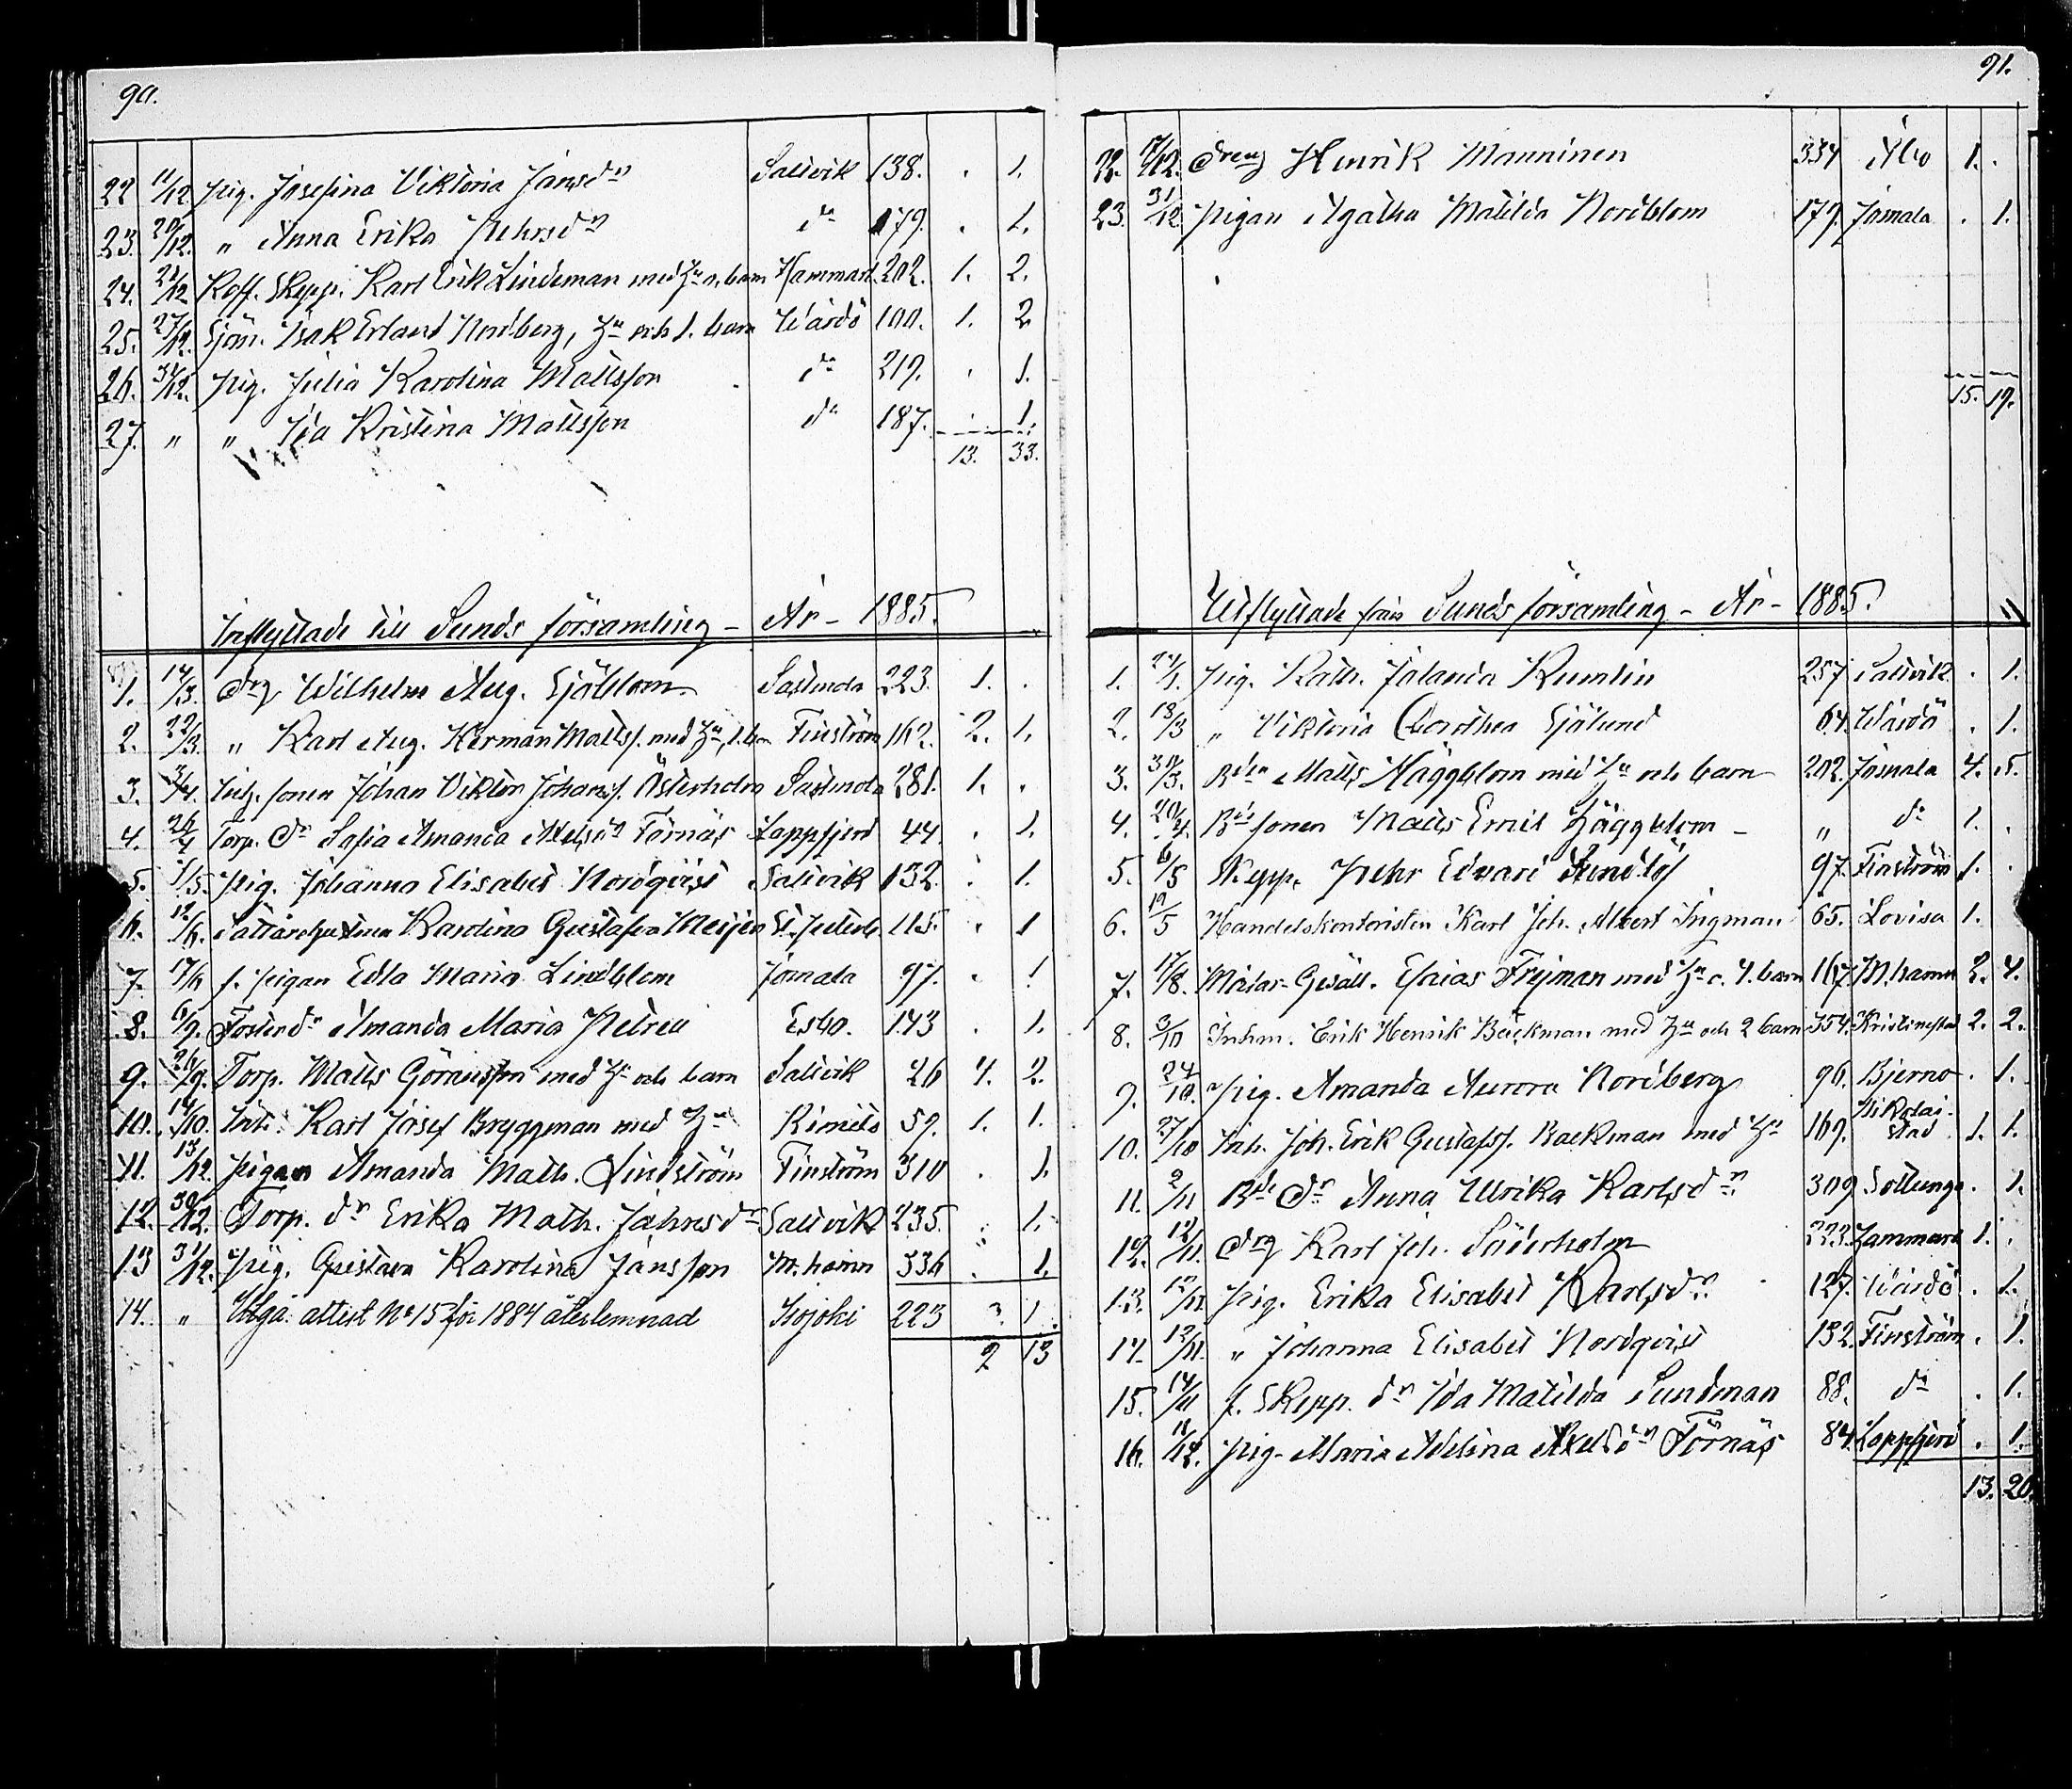 90.
22 11/12 Pig. Josefina Viktoria Jansdr Saltvik 138. . 1.
23. 20/12. " Anna Erika Pehrsdr do 179. . 1.
24. 21/12 Koff. Skepp. Karl Erik Lindeman med Hu o. barn Hammarl. 202. 1. 2.
25. 27/12. Sjöm. Isak Erland Nordberg, Hu och 1. barn Wårdö 100. 1. 2
26. 31/12. Pig. Julia Karolina Mattsson do 219. . 1.
27. " " Ida Kristina Mattsson do 187. . 1.
13. 33.
Inflyttade till Sunds församling - År - 1885.
1. 14/3. Drg Wilhelm Aug. Sjöblom Sastmola 223. 1. .
2. 22/3. " Karl Aug. Herman Matts. med Hu, 1. barn Finström 162. 2. 1.
3. 3/4. Inh. sonen Johan Viktor Johans. Österholm Sastmola 281. 1. .
4. 26/4 Torp. dr Sofia Amanda Axelsdr Törnäs Lappfjerd 44. . 1.
5. 1/5. Pig. Johanna Elisabet Nordqvist Saltvik 132. . 1.
6. 12/6. Karolina Gustafva Meijer St. Petersb. 115. . 1
7. 17/6 f. Pigan Edla Maria Lindblom Jomala 97. . 1
8. 6/9. Fosterdr Amanda Maria Petrea Esbo. 143 . 1.
9. 26/9. Torp. Matts Göransson med Hu och barn Saltvik 26 4. 2.
10. 14/10. Inh. Karl Josef Bryggman med Hu Rimito 59. 1. 1.
11. 13/12. Pigan Amanda Math. Lindström Finström 310 . 1.
12. 30/12. Torp. dr Erika Math. Johnsdr Saltvik 235. . 1.
13 31/12. Pig. Gustava Karolina Jansson M.hamn 336 . 1.
14. " Utgå. attest No 15 för 1884 återlemnad Ijoki 223 . 1.
9 13
91.
22. 17/12. Dreng Henrik Manninen 334 Åbo 1. .
23. 31/12. Pigan Agatha Matilda Nordblom 179. Jomala . 1.
15. 19.
Utflyttade från Sunds församling - År - 1885.
1. 24/1. Pig. Kath. Jolanda Rumlin 257 Saltvik . 1.
2. 18/3 " Viktoria Dorothea Sjölund 64. Wårdö . 1.
3. 30/3. Bden Matts Häggblom med Hu och barn 202. Jomala 4. 5.
4. 20/4. Bde sonen Matts Emil Häggblom - " do 1. .
5. 6/5 Skepp. Pehr Edvard 97. Finström 1. .
6. 19/5 Handelskontoristen Karl Joh. Albert Ingman 65. Lovisa 1.
7. 17/8. Målar-Gesäll. Esaias Frejman med Hu o. 4. barn 167. M.hamn 2. 4.
8. 3/10 Inhm. Erik Henrik Backman med Hu och 2 barn 354. Kristinestad 2. 2.
9. 24/10. Pig. Amanda Aurora Nordberg 96. Bjerno . 1.
10. 27/10 Inh. Joh. Erik Gustafs. Backman med Hu 169. Nikolaistad 1. 1.
11. 2/11 Bde dr Anna Ulrika Karlsdr 309 Sottunga . 1.
12. 12/11. Drg Karl Joh. Söderholm 223. Hammarl 1. .
13. 12/11. Pig. Erika Elisabet Karlsdr 127. Wårdö . 1.
14. 13/11. " Johanna Elisabet Nordqvist 132. Finström . 1.
15. 14/11 f. Skepp. dr Ida Matilda Sundman 88. do . 1.
16. 11/12. Pig. Maria Adelina Axelsdr Törnäs 84. Lappfjerd . 1.
13. 20.